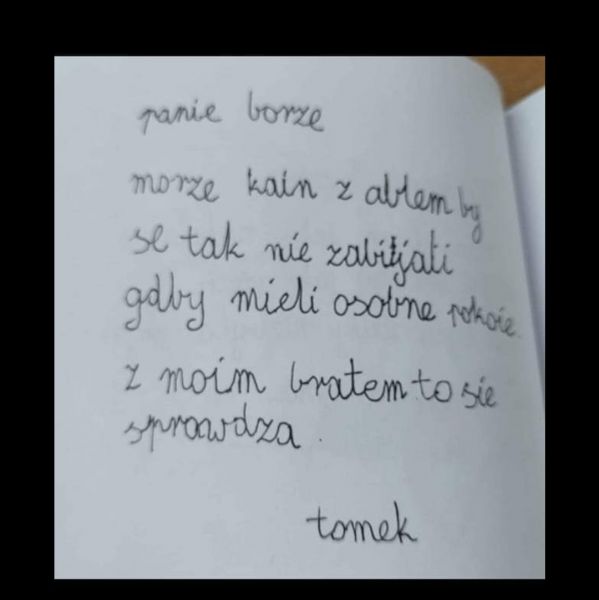 panie borze
morze kain z ablem by
se tak nie zabijali
gdby mieli osobne pokoie
z moim bratem to sie
sprawdza.
tomek